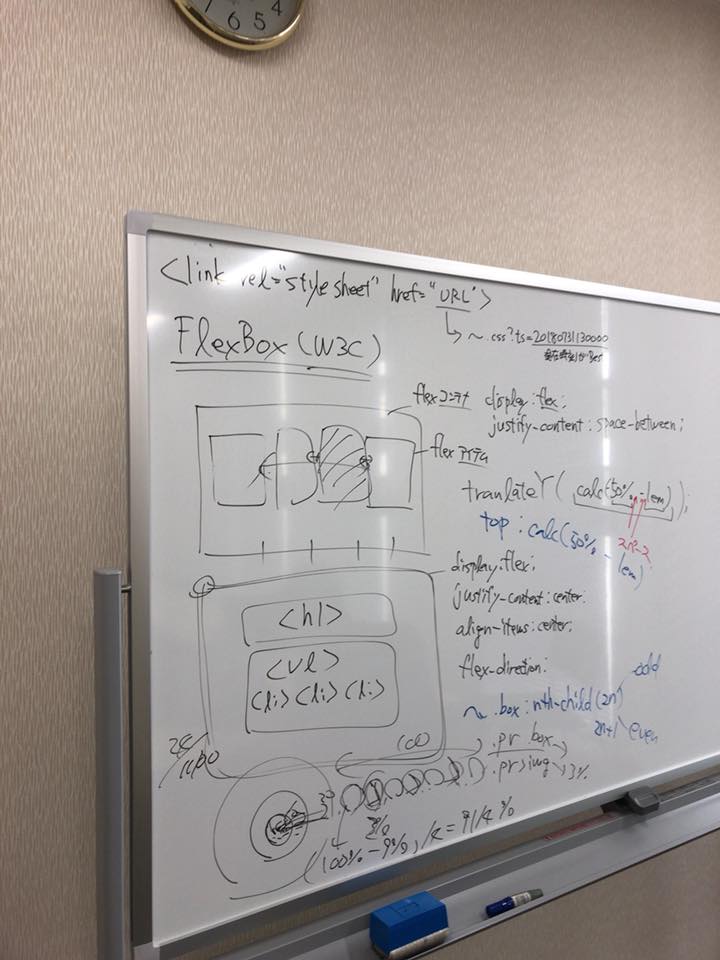 7 6 5 4
<link rel="stylesheet" href="URL">
~.css?.ts=20180731130000
FlexBox (W3C)
flexコンテナ
display:flex;
justify-content:space-between;
flexアイテム
tranlateY(calc(50% - 1em));
top:calc(50% - 1em)
display:flex;
justify-content:center;
align-items:center;
flex-direction:
<h1>
<ul>
<li> <li> <li>
~.box:nth-child(2n)
odd
2n+1
even
100
.pr box
3%
(100%-9%)/4=91/4%